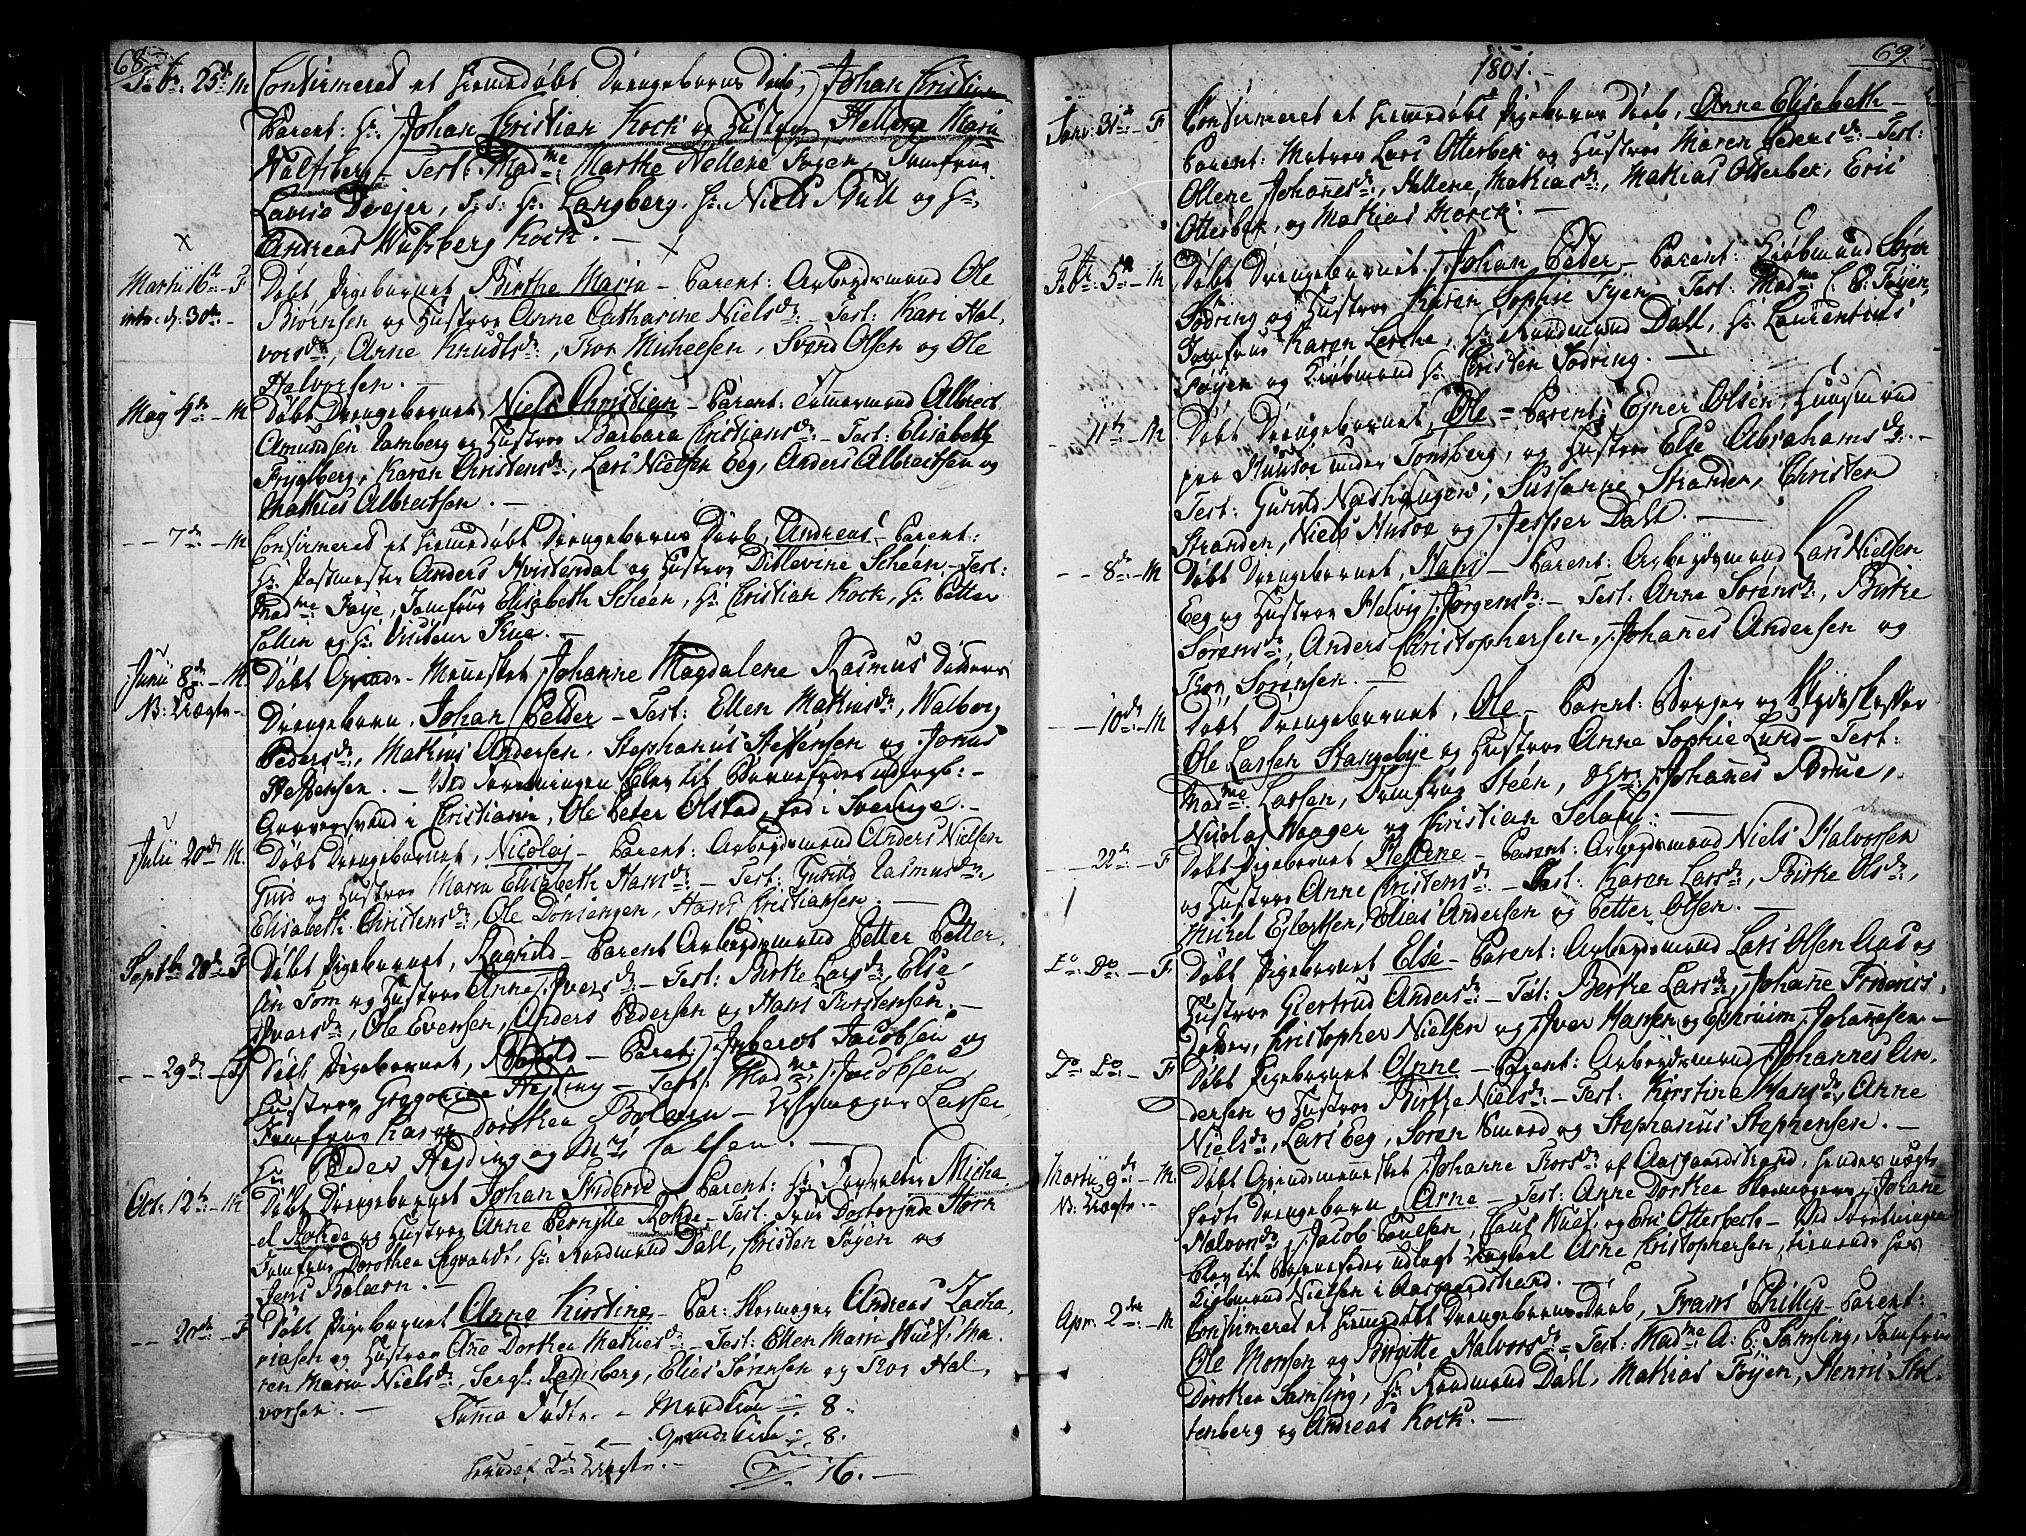 68.
Febr: 25de M Confirmeret et hiemedøbt Drengebarns Daab, Johan Christian
Parent: Hr. Johan Christian Kock og Hustrue Hellene Maria
Wulfsberg – Test: Madme: Marthe Hellene Foyen, Jomfrue
Lovise Dvejer, Hr. Langberg, Hr. Niels Dull og Hr.
Andreas Wulfsberg Kock. –
Martii 16de – F Døbt Pigebarnet, Birthe Maria – Parent: Arbeydsmand Ole
intr: d: 30te – Biørnsen og Hustroe Anne Catharine Nielsdr: – Test: Kari Hal-
vorsdr:, Anne Knudtsdr:, Thor Micheelsen, Svend Olsen og Ole
Halvorsen. –
May 4de – M Døbt Drengebarnet, Niels Christian – Parent: Tømmermand Albrect
Amundsen Ramberg og Hustroe Barbara Christiansdr: – Test: Elisabeth
Fryglberg, Karen Christensdr:, Lars Nielsen Eeg, Anders Albrectsen og
Mathies Albrectsen. –
– – 7de – M Confirmeret et hiemedøbt Drengebarns Daab, Andreas – Parent:
Hr. Postmester Anders Hvistendal og Hustroe Ditlevine Scheen – Test:
Madme Foye, Jomfrue Elisabeth Scheen, Hr. Christian Kock, Hr. Petter
Follen og Hr. Visiteur Krue. –
Junii 8de – M. Døbt Qvinde-Mennesket Johanne Magdalene Rasmus Datters
N: Uægte – Drengebarn, Johan Peder – Test: Ellen Mathiasdr:, Walborg
Pedersdr:, Mathias Andersen, Stephanus Steffensen og Jonas
Steffensen. – Ved Forretningen blev til Barnefader udlagt: –
Garversvend i Christiania, Ole Peter Olstad, fød i Sverrige. –
Julii 20de M. Døbt Drengebarnet, Nicolaj – Parent: Arbeydsmand Anders Nielsen
og Hustroe Maren Elisabeth Hansdr: – Test: Gunild Rasmusdr:,
Elisabeth Christensdr:, Ole Dønsengen, Hans Christiansen. –
Septbr 28de F Døbt Pigebarnet, Ragnild – Parent Arbeydsmand Petter Petter-
sen Tom og Hustroe Anne Iversdr: – Test: Birthe Larsdr:, Else
Ivarsdr:, Ole Evensen, Anders Pedersen og Hans Torstensen. –
– – 29de – F Døbt Pigebarnet, – Parent: Ingbergt Jacobsen og
Hustroe Gregorine Hejting – Test: Madme: Jacobsen,
Jomfrue Karen Dorothea Bolærn – Larsen,
Hr Peder Hejding og Mr: Carlsen. –
Oct: 12te – M Døbt Drengebarnet Johan Frideric – Parent: Hr. Forvalter Micha-
el Rohde og Hustroe Anne Pernille Rohde – Test: Frue Doctorinde Horn
Jomfrue Dorothea Sigvardt, Hr. Raadmand Dall, Christen Føyen og
Jens Bolærn. –
– – 20de – F Døbt Pigebarnet Anna Kirstine – Par: Skomager Andreas Zacha-
riasen og Hustroe Ane Dorthea Mathiasdr: – Test: Ellen Maria Wulf: Ma-
ren Maria Nielsdr:, Serg: Rønsberg, Elias Sørensen og Thor Hal-
vorsen. – Suma Fødte – Mandkion – 8.
Qvindekiøn – 8.
hvoraf 2de Uægte. 16. –
69.
1801. –
Janv: 31te – F Confirmeret et hiemmedøbt Pigebarns Daab, Anne Elisabeth –
Parent: Matros Lars Otterbek og Hustroe Maren Pedersdr: – Test:
Ollene Johanesdr:, Hellene Mathiasdr:, Mathias Otterbek, Eric
Otterbek, og Mathias Mørck. –
Febr: 5te – M Døbt Drengebarnet Johan Peder – Parent: Kiøbmand Sører
Sødring og Hustroe Karen Sophie Fyen, Test: Madme C. P. Føyen,
Jomfrue Karen Lerche, Hr. Raadmand Dall, Hr. Laurentius
Føyen og Kiøbmand Hr. Christen Sødring. –
– 11te – M Døbt Drengebarnet, Ole – Parent: Ejner Olsen, Huusmand
paa Huusøe under Tønsberg, og Hustroe Else Abrahamsdr: –
Test: Gunild Næshaugen, Sussanne Stranden, Christen
Stranden, Niels Husøe og Jesper Dall. –
– – 8de – M Døbt Drengebarnet, Hans – Parent: Arbeydsmand Lars Nielsen
Eeg og Hustroe Helvig Jørgensdr: – Test: Anne Sørensdr:, Birthe
Sørensdr:, Anders Christophersen, Johanes Andersen og
Thor Sørensen. –
– – 10de – M Døbt Drengebarnet, Ole – Parent: Borger og Skydsskaffer
Ole Larsen Stangebye og Hustroe Anne Sophie Lund – Test:
Madme Larsen, Jomfrue Steen, Hr. Johanes Brue,
Nicolaj Waager og Christian Selow. –
– 22de: – F Døbt Pigebarnet Hellene – Parent: Arbeydsmand Niels Halvorsen
og Hustroe Anne Christensdr: – Test: Karen Larsdr:, Birthe Olsdr:,
Michel Ejlertsen, Elias Andersen og Petter Olsen. –
Eo: Do – F Døbt Pigebarnet Else – Parent: Arbeydsmand Lars Olsen Aas og
Hustroe Giertrud Andersdr: – Test: Berthe Larsdr:, Johanne Frideric-
Christopher Nielsen og Iver Hansen og Ephraim Johanesen –
Do: Eo: – F Døbt Pigebarnet Anne – Parent: Arbeydsmand Johannes An-
dersen og Hustroe Birthe Nielsdr: – Test: Kirstine Hansdr:, Anne
Nielsdr:, Lars Eeg, Søren Smed og Stephanus Stephensen. –
Martii 9de – M. Døbt Qvindemennesket Johanne Thorsdr: af Aasgaardstrand, hendes uægte
N: Uægte. – fødte Drengebarn, Arne – Test: Anne Dorthea Skomagers, Johane
Halvorsdr:, Jacob Poulsen, Claus Wulf, og Eric Otterbech – Ved Forretningen
blev til Barnefader udlagt Arne Christophersen, tienende hos
Kiøbmand Nielsen i Aasgaardstrand. –
Apr. 2den – M Confirmeret et hiemedøbt Drengebarns Daab, Frans Phillip – Parent:
Ole Monsen og Birgitte Halvorsdr: – Test: Madme A: C: Samsing, Jomfrue
Dorothea Samsing, Hr. Raadmand Dall, Mathias Føyen, Henric Stol-
tenberg og Andreas Kock. –